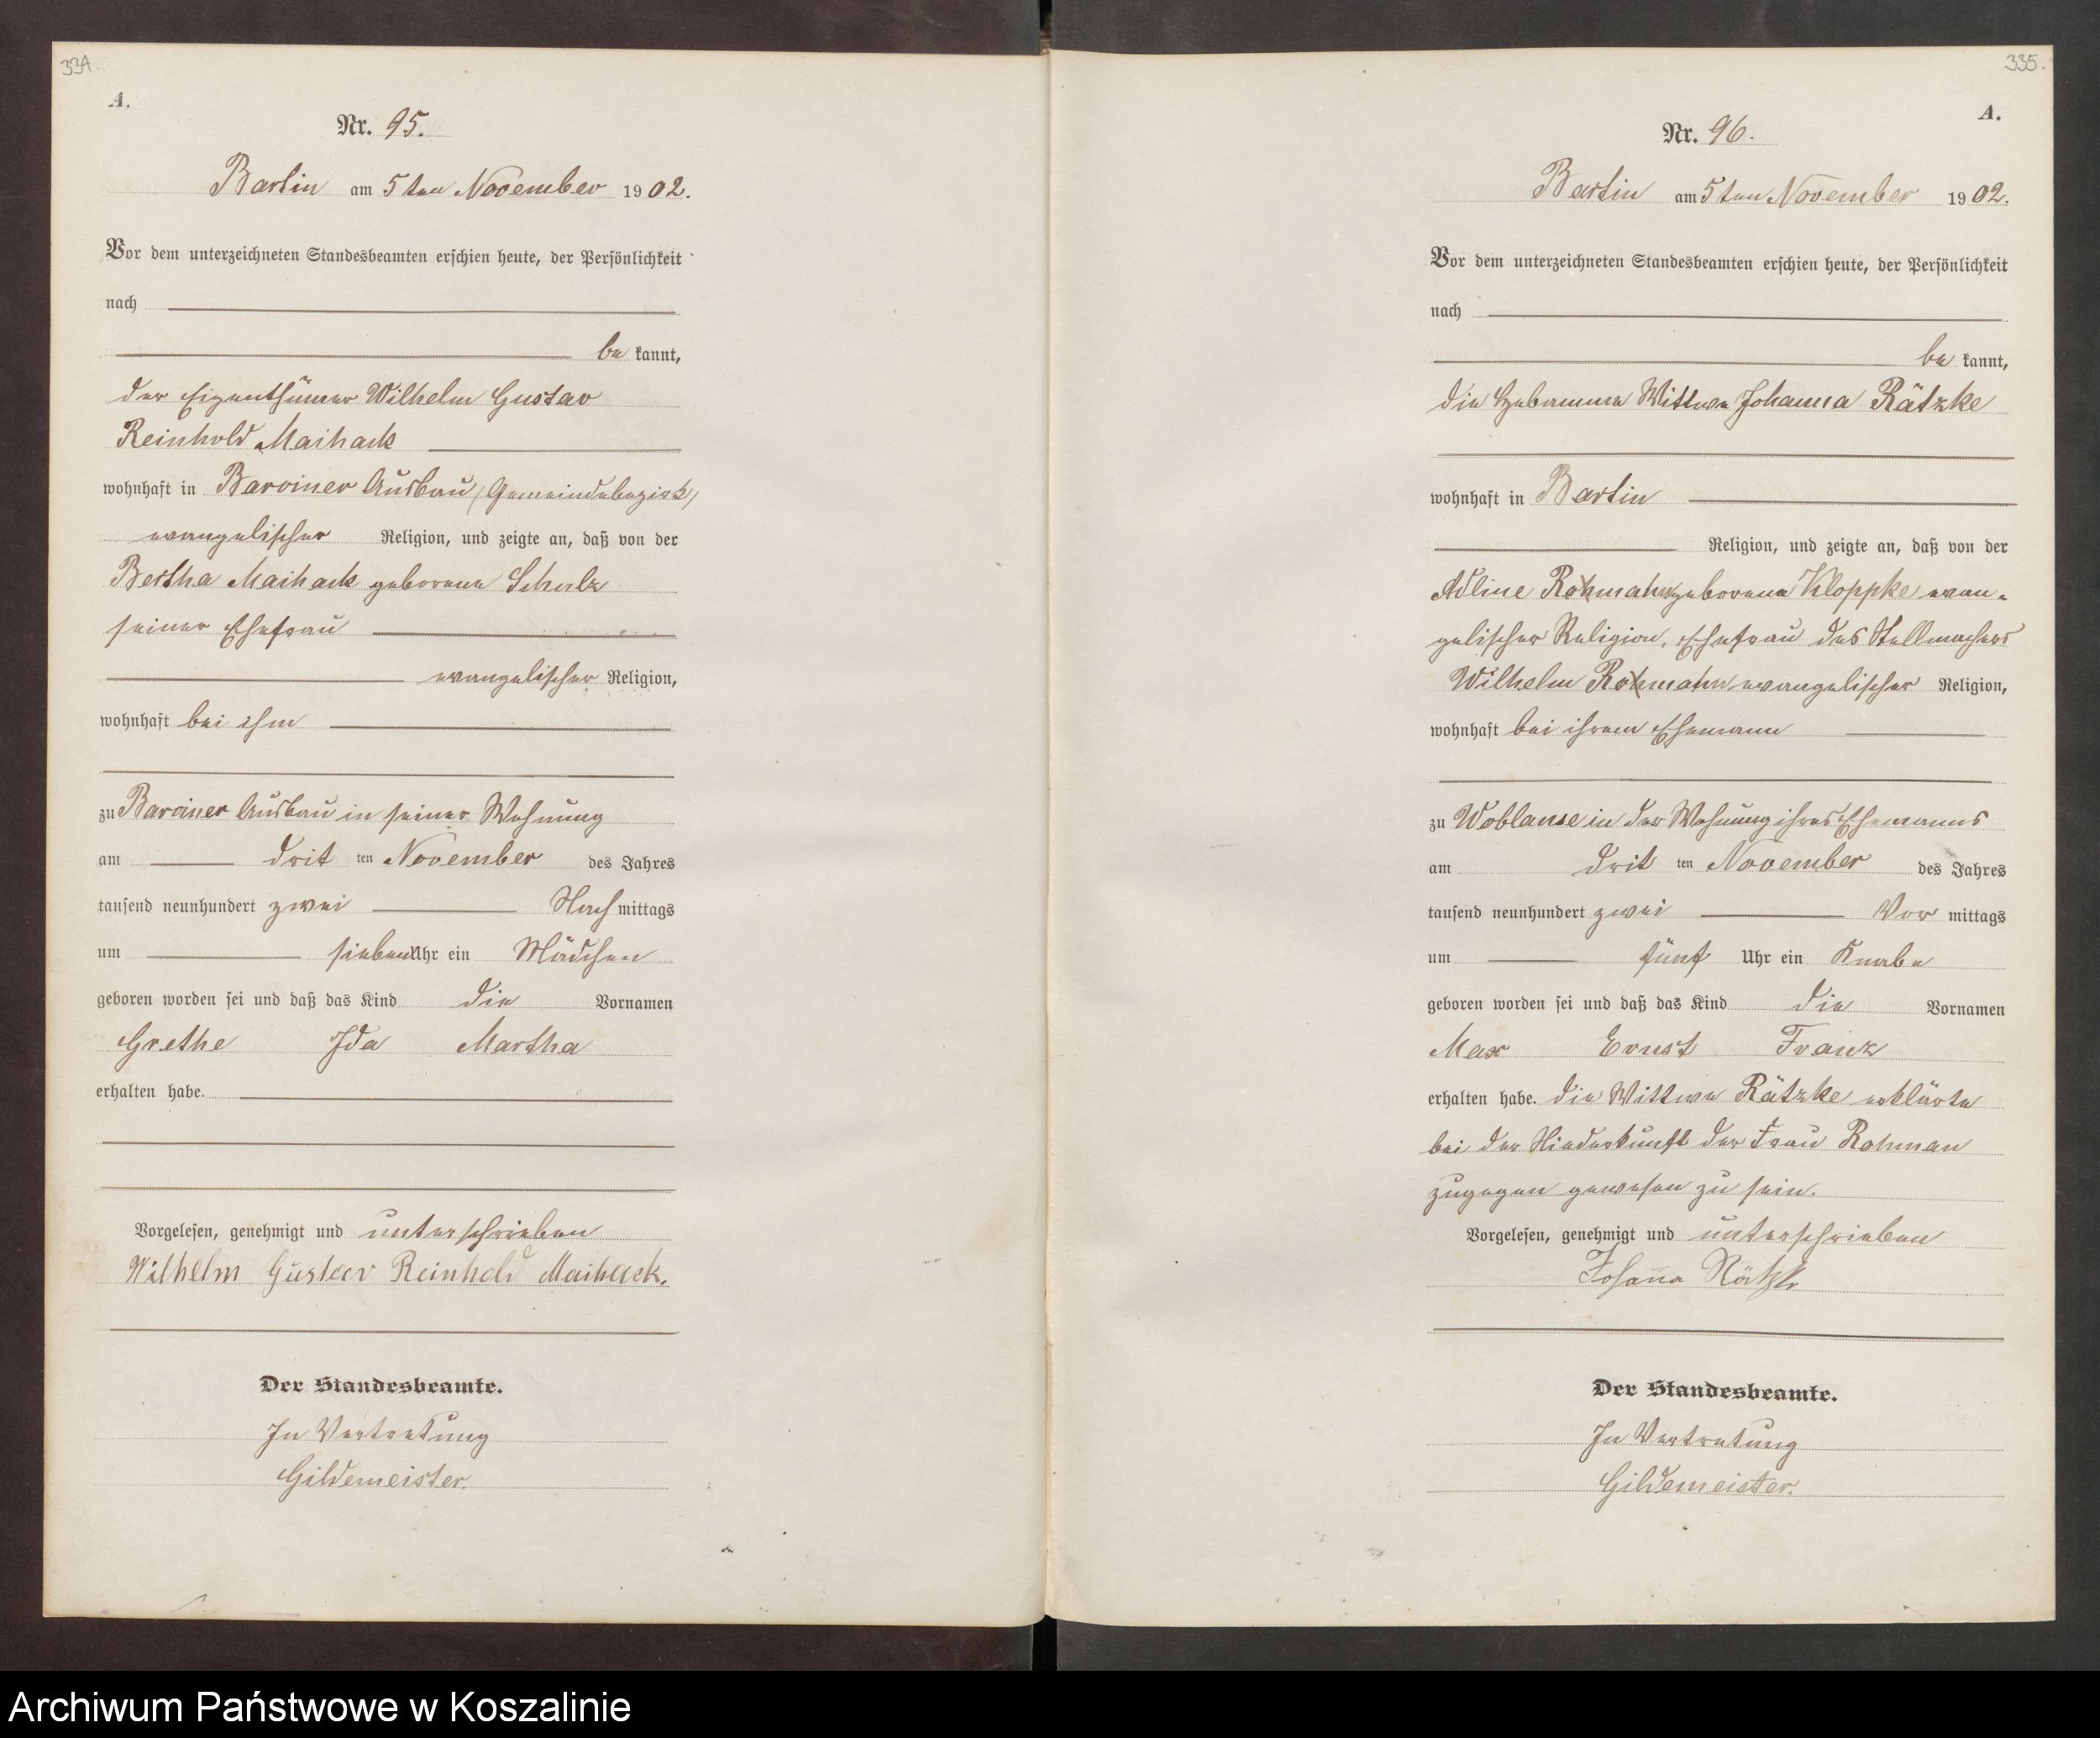 334.
A.
Nr. 95.
Bartin am 5ten November 1902.
Vor dem unterzeichneten Standesbeamten erschien heute, der Persönlichkeit
nach
be kannt,
der Eigenthümer Wilhelm Gustav
Reinhold Maihack
wohnhaft in Barviner Ausbau, (Gemeindebezirk)
evangelischer Religion, und zeigte an, daß von der
Bertha Maihack geborene Schulz
seiner Ehefrau
evangelischer Religion,
wohnhaft bei ihm
zu Barviner Ausbau in seiner Wohnung
am dritten November des Jahres
tausend neunhundert zwei Nachmittags
um sieben Uhr ein Mädchen
geboren worden sei und daß das Kind die Vornamen
Grethe Ida Martha
erhalten habe.
Vorgelesen, genehmigt und unterschrieben
Wilhelm Gustav Reinhold Maihack.
Der Standesbeamte.
In Vertretung
Gildemeister.
335.
A.
Nr. 96.
Bartin am 5ten November 1902.
Vor dem unterzeichneten Standesbeamten erschien heute, der Persönlichkeit
nach
be kannt,
die Hebamme Wittwe Johanna Rätzke
wohnhaft in Bartin
Religion, und zeigte an, daß von der
Adline geborene Kloppke evan-
gelischer Religion, Ehefrau des Stellmachers
Wilhelm evangelischer Religion,
wohnhaft bei ihrem Ehemann
zu Woblanse in der Wohnung ihres Ehemanns
am dritten November des Jahres
tausend neunhundert zwei Vor mittags
um fünf Uhr ein Knabe
geboren worden sei und daß das Kind die Vornamen
Max Ernst Franz
erhalten habe. die Wittwe Rätzke erklärte
bei der Niederkunft der Frau Rohman
zugegen gewesen zu sein.
Vorgelesen, genehmigt und unterschrieben
Johanna Rätzke
Der Standesbeamte.
In Vertretung
Gildemeister.
Archiwum Państwowe w Koszalinie